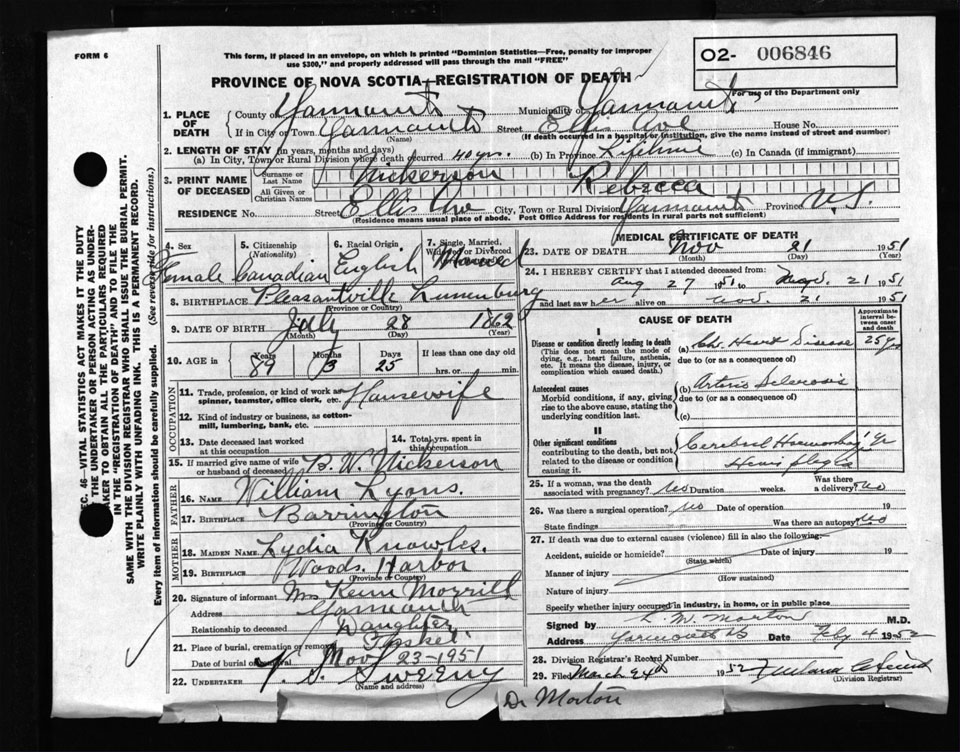 FORM 6
This form, if placed in an envelope, on which is printed "Dominion Statistics—Free, penalty for improper
use $300," and properly addressed will pass through the mail "FREE"
O2- 006846
For use of the Department only
PROVINCE OF NOVA SCOTIA—REGISTRATION OF DEATH
1. PLACE OF DEATH County of Yarmouth Municipality of Yarmouth
If in City or Town Yarmouth (Name) Street Ellis Ave House No.
(If death occurred in a hospital or institution, give the name instead of street and number)
2. LENGTH OF STAY (in years, months and days)
(a) In City, Town or Rural Division where death occurred 40 yrs. (b) In Province Lifetime (c) In Canada (if immigrant)
3. PRINT NAME OF DECEASED Surname or Last Name Nickerson
All Given or Christian Names Rebecca
RESIDENCE No. Street Ellis Ave City, Town or Rural Division Yarmouth Province N.S.
(Residence means usual place of abode. Post Office Address for residents in rural parts not sufficient)
4. Sex Female
5. Citizenship (Nationality) Canadian
6. Racial Origin English
7. Single, Married, Widowed or Divorced
8. BIRTHPLACE Pleasantville Lunenburg
(Province or Country)
9. DATE OF BIRTH July 28 1862
(Month) (Day) (Year)
10. AGE in Years 89 Months 3 Days 25 If less than one day old
hrs. or min.
OCCUPATION
11. Trade, profession, or kind of work as spinner, teamster, office clerk, etc. Housewife
12. Kind of industry or business, as cotton-mill, lumbering, bank, etc.
13. Date deceased last worked at this occupation
14. Total yrs. spent in this occupation
15. If married give name of wife or husband of deceased B. W. Nickerson
FATHER
16. NAME William Lyons.
17. BIRTHPLACE Barrington
(Province or Country)
MOTHER
18. MAIDEN NAME Lydia Knowles.
19. BIRTHPLACE Woods Harbor
(Province or Country)
20. Signature of informant Mrs Morrill
Address Yarmouth
Relationship to deceased Daughter
21. Place of burial, cremation or removal Tusket
Date of burial or removal Nov 23-1951
22. UNDERTAKER V. S. Sweeny
(Name and address)
MEDICAL CERTIFICATE OF DEATH
23. DATE OF DEATH Nov 21 1951
(Month) (Day) (Year)
24. I HEREBY CERTIFY that I attended deceased from:
Aug 27 1951 to Nov. 21 1951
and last saw her alive on Nov. 21 1951
CAUSE OF DEATH
Approximate interval between onset and death
I
Disease or condition directly leading to death
(This does not mean the mode of dying, e.g., heart failure, asthenia, etc. It means the disease, injury, or complication which caused death.)
(a) Chr. Heart Disease 25 yrs
due to (or as a consequence of)
Antecedent causes
Morbid conditions, if any, giving rise to the above cause, stating the underlying condition last.
(b) Arterio Sclerosis
due to (or as a consequence of)
(c)
II
Other significant conditions contributing to the death, but not related to the disease or condition causing it.
Cerebral Haemorrhage
Hemiplegia
25. If a woman, was the death associated with pregnancy? No Duration weeks. Was there a delivery? No
26. Was there a surgical operation? No Date of operation 19
State findings Was there an autopsy? No
27. If death was due to external causes (violence) fill in also the following:
Accident, suicide or homicide? Date of injury 19
(State which)
Manner of injury
(How sustained)
Nature of injury
Specify whether injury occurred in industry, in home, or in public place
Signed by L. W. Morton M.D.
Address Yarmouth NS Date Feby 4 1952
28. Division Registrar's Record Number
29. Filed March 24th 1952
(Division Registrar)
Dr Morton
SEC. 46—VITAL STATISTICS ACT MAKES IT THE DUTY
OF THE UNDERTAKER OR PERSON ACTING AS UNDER-
TAKER TO OBTAIN ALL THE PARTICULARS REQUIRED
IN THE "REGISTRATION OF DEATH" AND TO FILE THE
SAME WITH THE DIVISION REGISTRAR WHO SHALL ISSUE THE BURIAL PERMIT.
WRITE PLAINLY WITH UNFADING INK. THIS IS A PERMANENT RECORD.
Every item of information should be carefully supplied. (See reverse side for instructions.)